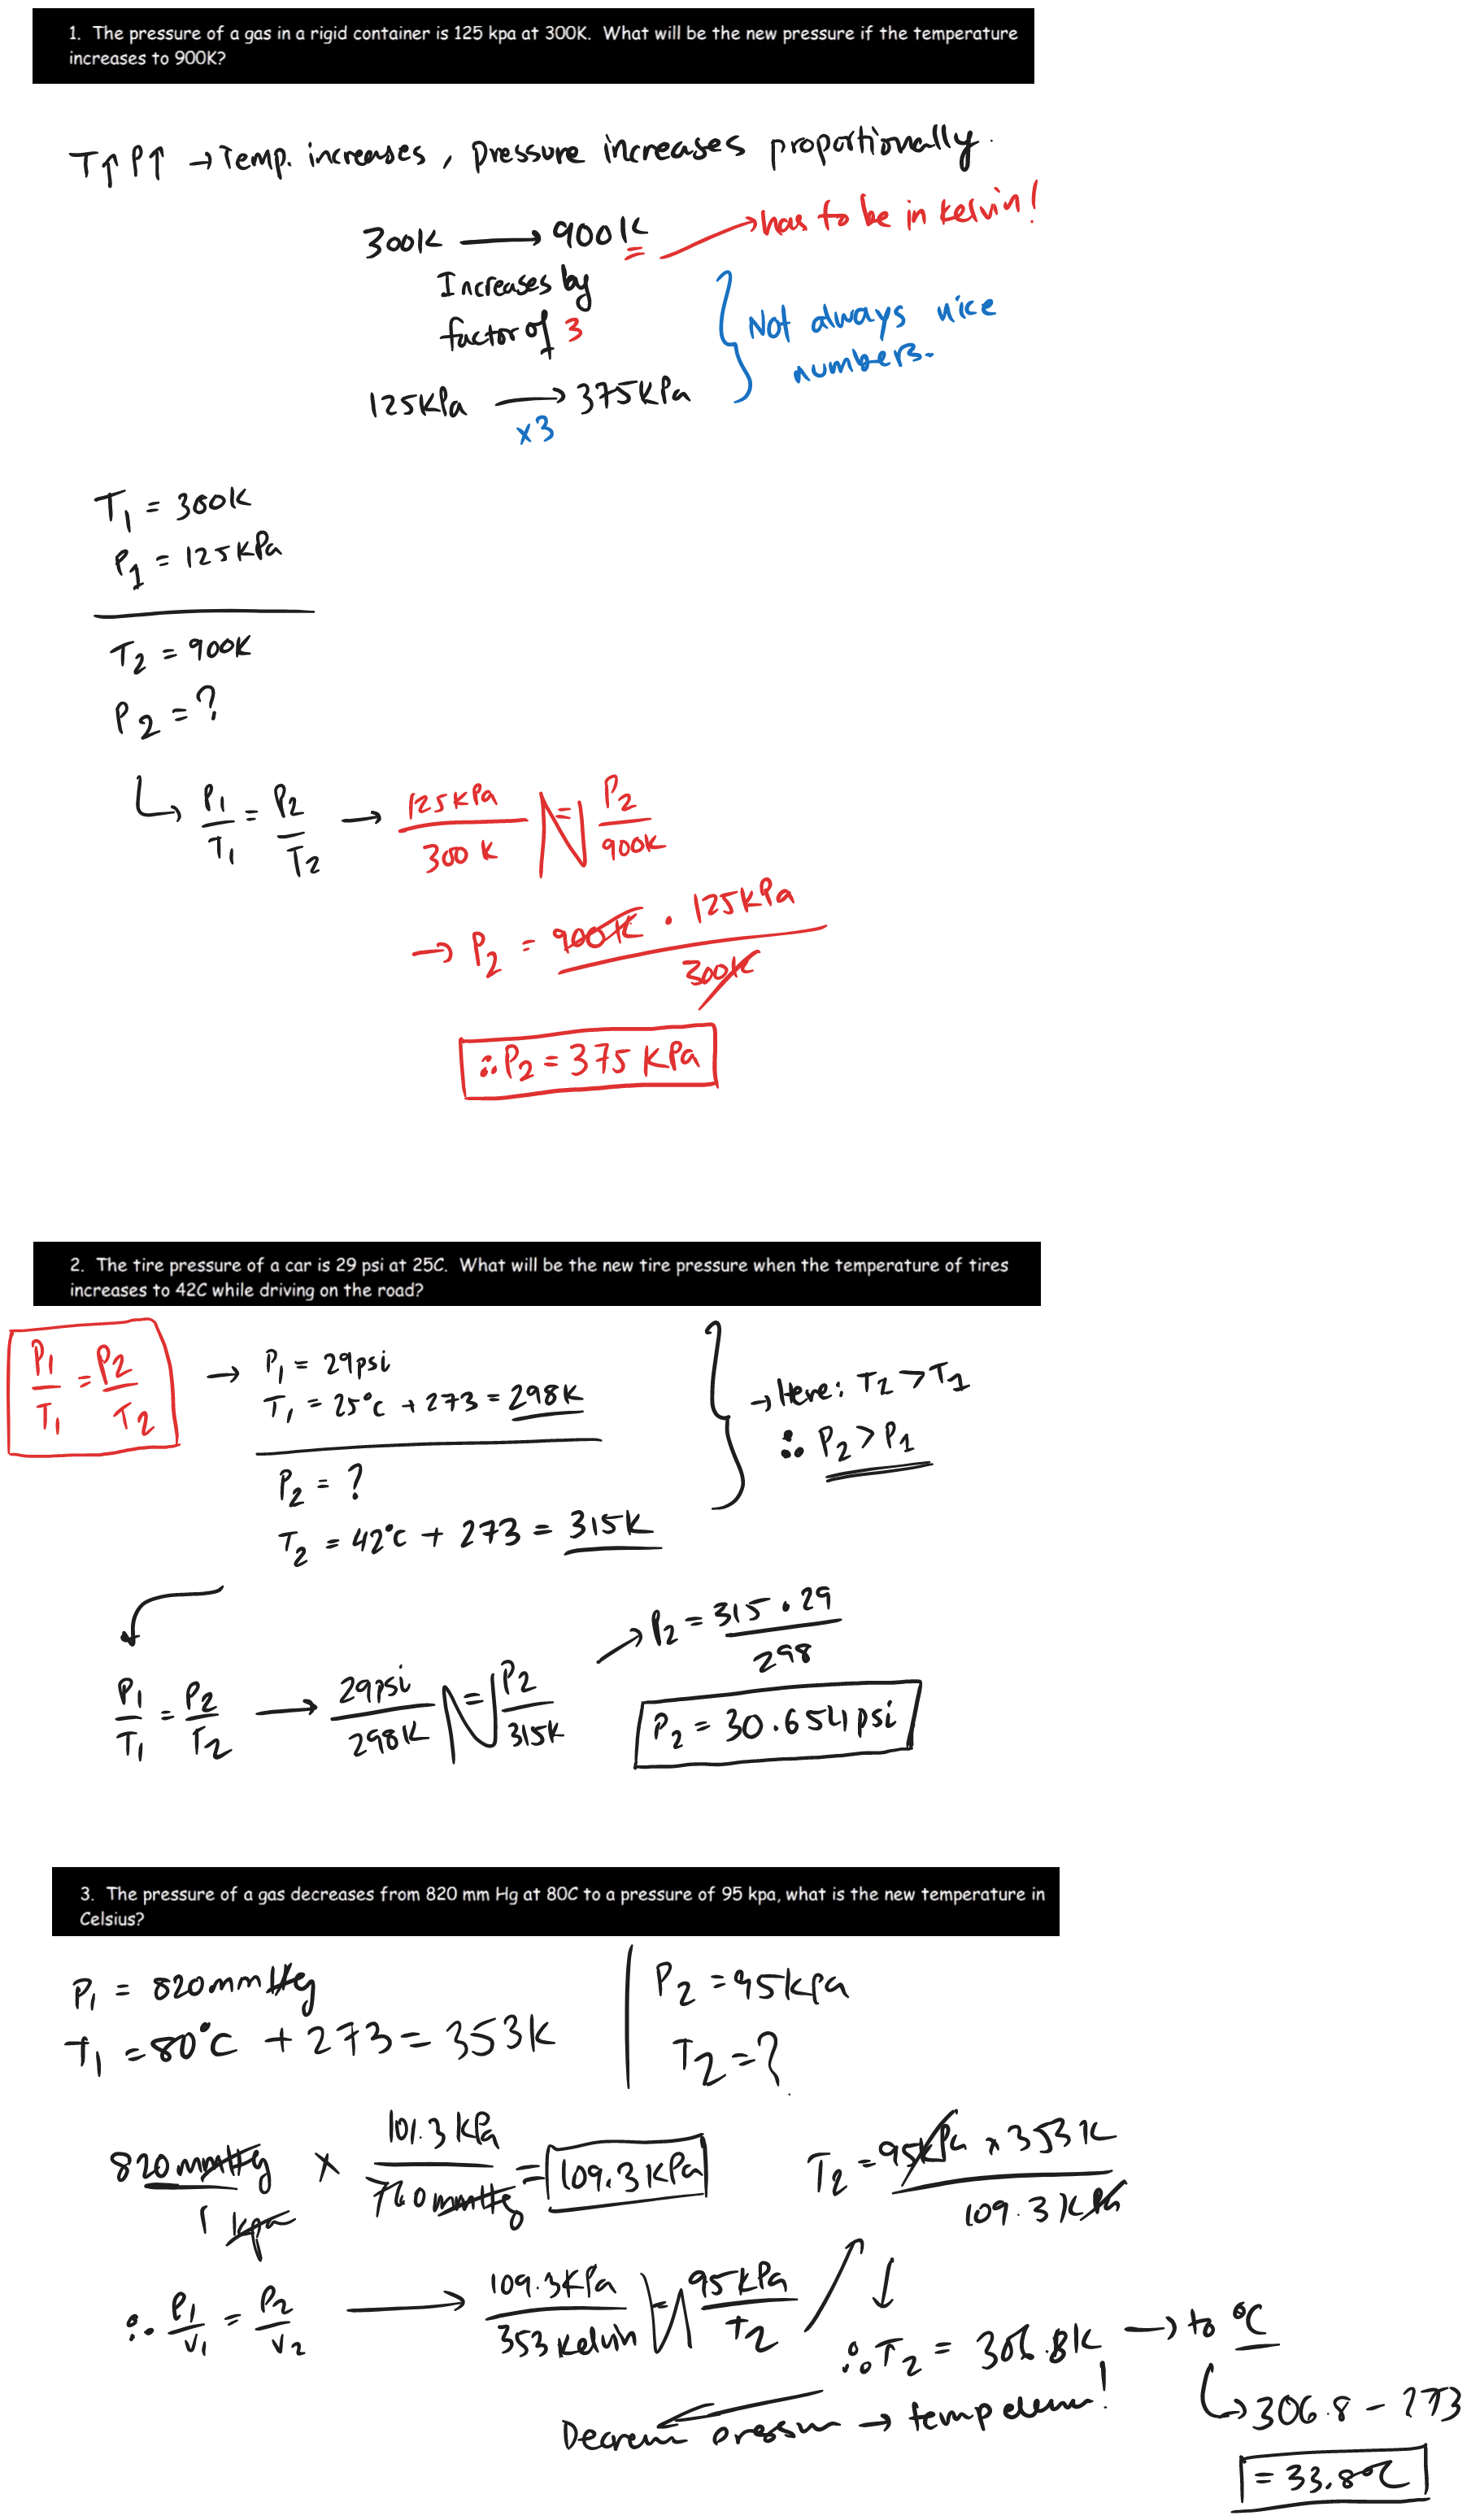 1. The pressure of a gas in a rigid container is 125 kpa at 300K. What will be the new pressure if the temperature
increases to 900K?
T↑ P↑ → Temp. increases, pressure increases proportionally.
300K → 900K → has to be in kelvin!
Increases by
factor of 3
Not always nice
numbers.
125KPa → 375KPa
x3
T₁ = 300K
P₁ = 125KPa
T₂ = 900K
P₂ = ?
↳ P₁/T₁ = P₂/T₂ → 125KPa/300K = P₂/900K
→ P₂ = 900K · 125KPa / 300K
∴ P₂ = 375 KPa
2. The tire pressure of a car is 29 psi at 25C. What will be the new tire pressure when the temperature of tires
increases to 42C while driving on the road?
P₁/T₁ = P₂/T₂ → P₁ = 29psi
T₁ = 25°C + 273 = 298K
P₂ = ?
T₂ = 42°C + 273 = 315K
→ Here: T₂ > T₁
∴ P₂ > P₁
P₁/T₁ = P₂/T₂ → 29psi/298K = P₂/315K
→ P₂ = 315 · 29 / 298
P₂ = 30.654 psi
3. The pressure of a gas decreases from 820 mm Hg at 80C to a pressure of 95 kpa, what is the new temperature in
Celsius?
P₁ = 820mmHg
T₁ = 80°C + 273 = 353K
P₂ = 95kpa
T₂ = ?
820mmHg/1 kpa × 101.3 KPa/760mmHg = 109.3KPa
∴ P₁/V₁ = P₂/V₂ → 109.3KPa/353 Kelvin = 95KPa/T₂
T₂ = 95KPa × 353K / 109.3KPa
∴ T₂ = 306.8K → to °C
↳ 306.8 - 273
= 33.8°C
→ temp